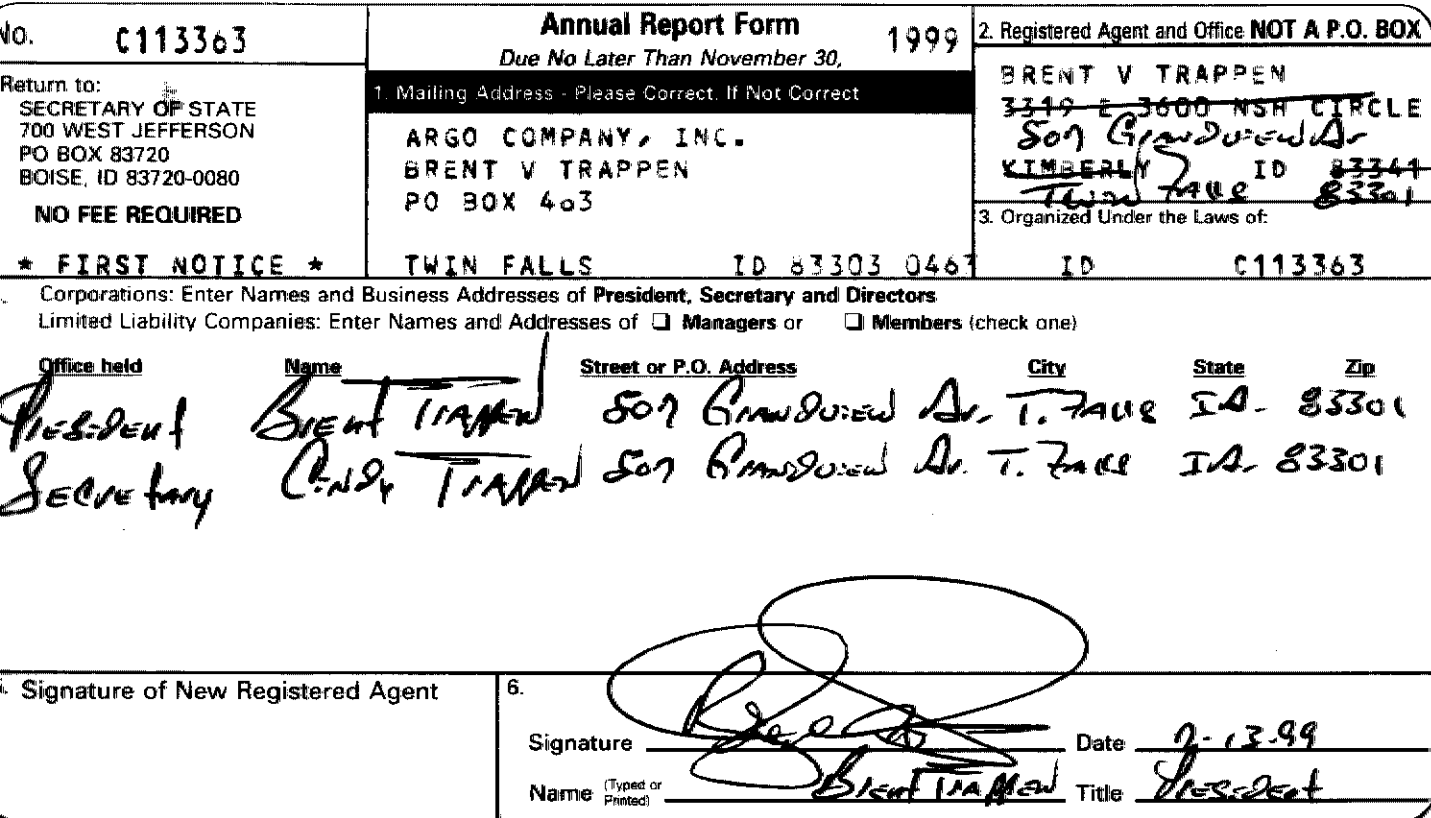 No. C113363
Annual Report Form 1999
Due No Later Than November 30,
Return to:
SECRETARY OF STATE
700 WEST JEFFERSON
PO BOX 83720
BOISE, ID 83720-0080
NO FEE REQUIRED
* FIRST NOTICE *
1. Mailing Address - Please Correct, If Not Correct
ARGO COMPANY, INC.
BRENT V TRAPPEN
PO BOX 463
TWIN FALLS ID 83303 0463
2. Registered Agent and Office NOT A P.O. BOX
BRENT V TRAPPEN
3319 E 3600 NSH CIRCLE
507 Grandview Dr
KIMBERLY ID 83341
Twin Falls 83301
3. Organized Under the Laws of:
ID C113363
Corporations: Enter Names and Business Addresses of President, Secretary and Directors
Limited Liability Companies: Enter Names and Addresses of ❑ Managers or ❑ Members (check one)
Office held Name Street or P.O. Address City State Zip
President Brent Trappen 507 Grandview Dr. T. Falls ID. 83301
Secretary Cindy Trappen 507 Grandview Dr. T. Falls ID. 83301
Signature of New Registered Agent
6.
Signature Date 7-13-99
Name (Typed or Printed) Brent Trappen Title President